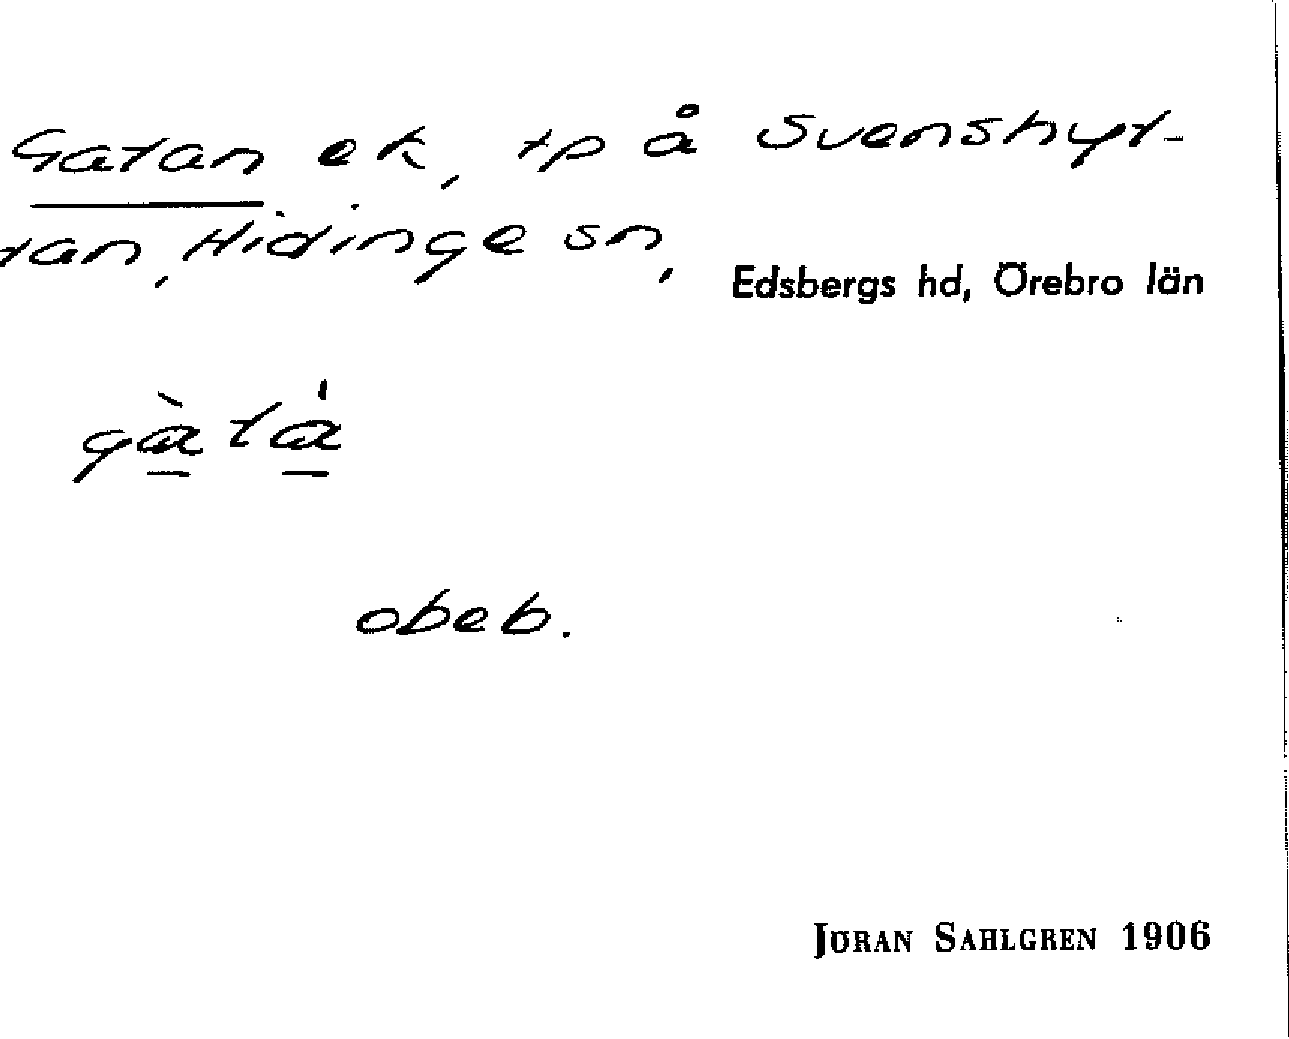 Gatan ek, tp å Svenshyt-
tan, Hidinge sn,
Edsbergs hd, Örebro län
gàtá
obeb.
JÖRAN SAHLGREN 1906